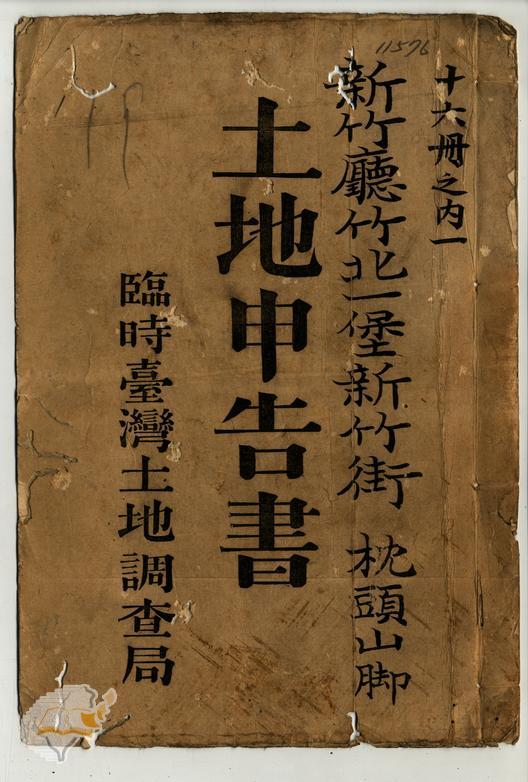 11576
十六冊之內一
新竹廳竹北一堡新竹街 枕頭山脚
土地申告書
臨時臺灣土地調查局